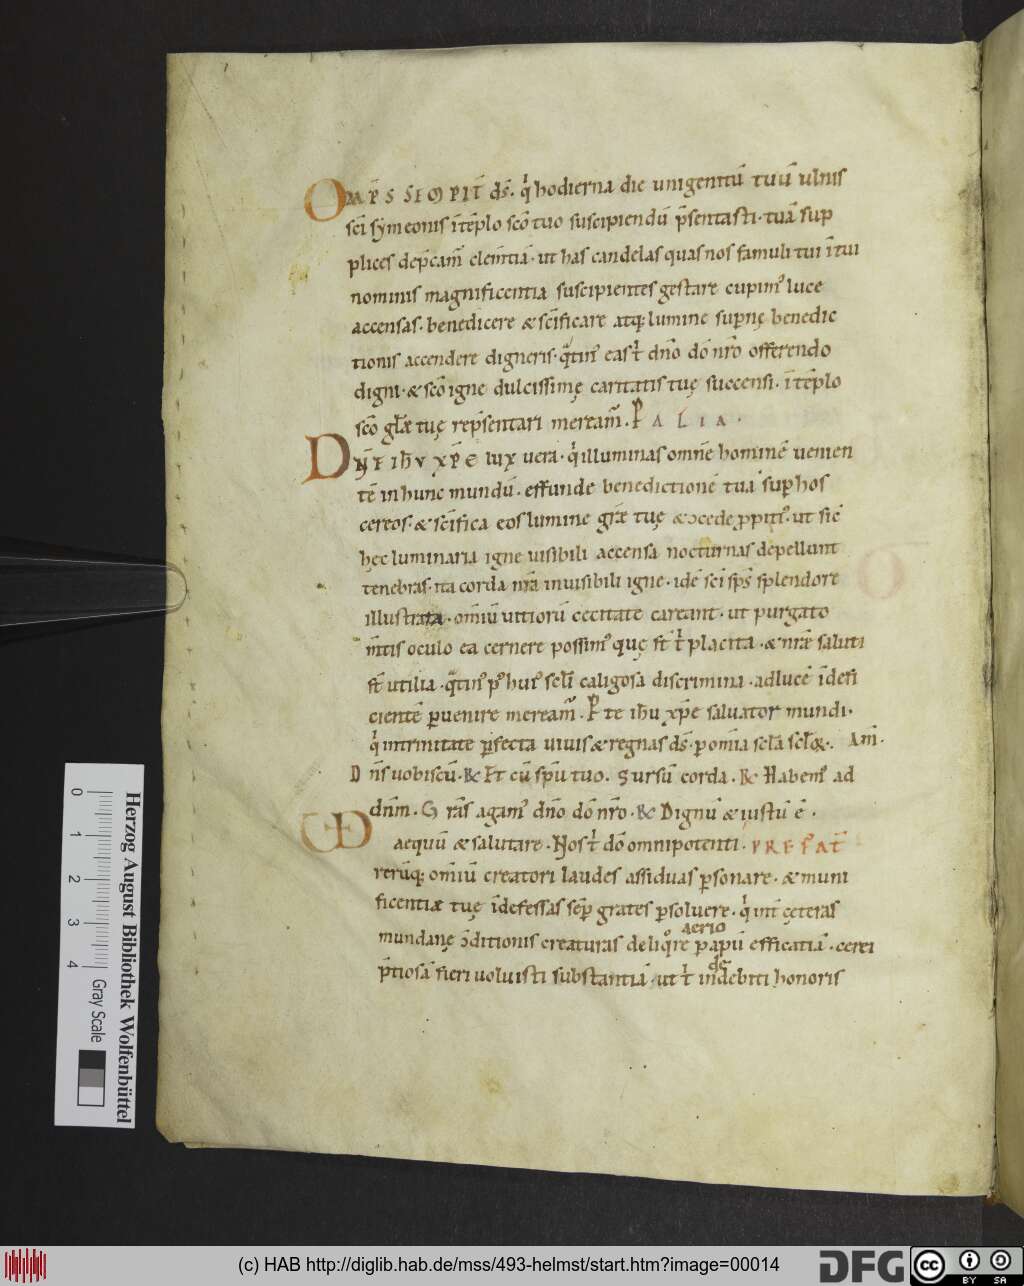 OMP̄S SEMPIT̄ ds̄. q̇ hodierna die unigenitū tuū ulnis
sc̄i symeonis ītēplo sc̄o tuo suscipiendū p̄sentasti· tuā sup
plices dep̄cam̄ clem̄tiā· ut has candelas quas nos famuli tui ī tui
nominis magnificentia suscipientes gestare cupim᾽ luce
accensas. benedicere & sc̄ificare atq; lumine sup̄nę benedic
tionis accendere digneris· q̇tin᾽ eas t̄ dn̄o dō nr̄o offerendo
digni· & sc̄o igne dulcissimę caritatis tuę succensi· ī tēplo
sc̄o gl̄æ tuę rep̄sentari meream̄. P ALIA·
DN̄E IHU XP̄E lux uera· q̇ illuminas omnē hominē uenien
tē in hunc mundū· effunde benedictionē tuā sup̄ hos
cereos· & sc̄ifica eos lumine gr̄æ tuę & ↄcede ꝓpiti᾽· ut sic̄
hęc luminaria igne uisibili accensa nocturnas depellunt
tenebras· ita corda nr̄a inuisibili igne· idē sc̄i sp̄s splendore
illustrata· om̄iū uitiorū cecitate careant· ut purgato
m̄tis oculo ea cernere possim᾽ quę s̄t t̄ placita· & nr̄æ saluti
s̄t utilia· q̇tin᾽ p᾽ hui᾽ sc̄li caligosa discrimina· ad lucē īdefi
cientē ꝑuenire meream̄. P te ihū xp̄e saluator mundi·
q̇ in trinitate ꝑfecta uiuis & regnas ds̄· ꝑ om̄ia sc̄la sc̄lo⁊. Am̄·
Dn̄s uobiscū· R Et cū sp̄u tuo. Sursū corda. R Habem᾽ ad
dn̄m. Gras̄ agam᾽ dn̄o dō nr̄o· R Dignū & iustū ē·
aequū & salutare· Nos t̄ dō omnipotenti. PREFAT̄
rerūq; om̄iū creatori laudes assiduas ꝑsonare· & muni
ficentiæ tuę īdefessas sēp grates ꝑsoluere· q̇ int̄ cęteras
aerio
mundanę ↄditionis creaturas de liq᾽re p̄ apū efficatiā· cerei
de
p̄tiosā fieri uoluisti substantiā· ut t̄ indebiti honoris
Herzog August Bibliothek Wolfenbüttel
0 1 2 3 4
Gray Scale
(c) HAB http://diglib.hab.de/mss/493-helmst/start.htm?image=00014
DFG
cc BY SA